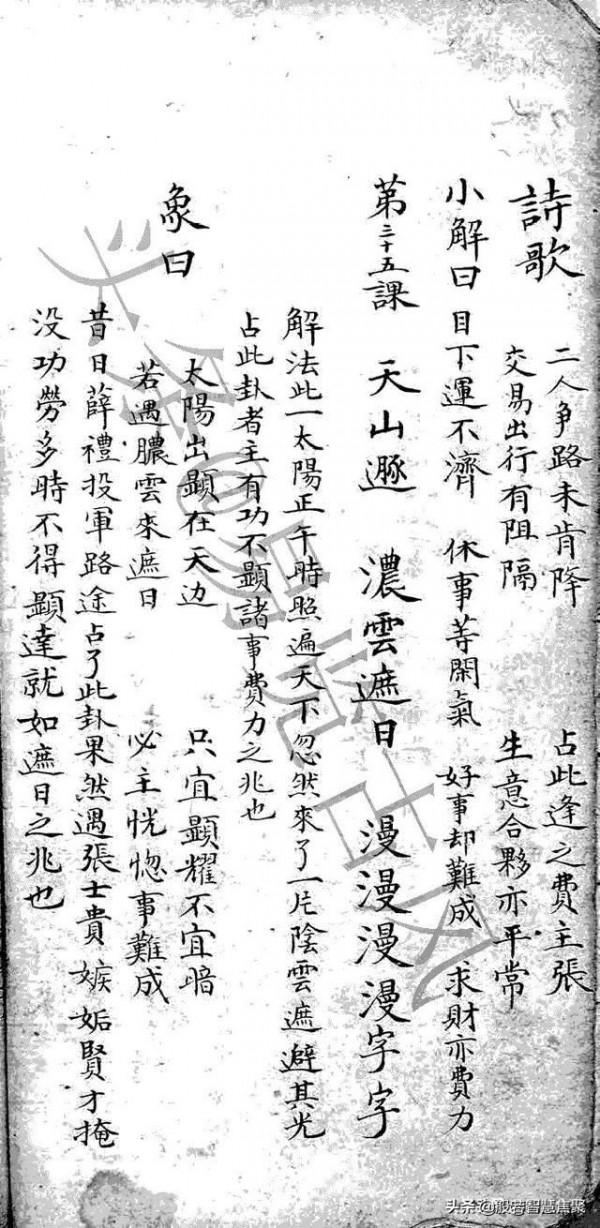 詩歌 二人爭路未肯降 占此逢之費主張
交易出行有阻隔 生意合夥亦平常
小解曰 目下運不濟 休事荨閑氣 好事却難成 求財亦費力
第三十五課 天山遯 濃雲遮日 漫漫漫漫字字
解法此一太陽正午時照遍天下忽然來了一片陰雲遮避其光
占此卦者主有功不顯諸事費力之兆也
象曰 太陽出顕在天边 只宜顕耀不宜暗
若遇膿雲來遮日 必主恍惚事難成
昔日薛禮投軍路途占了此卦果然遇張士貴嫉妬賢才掩
没功勞多時不得顕達就如遮日之兆也
头条@易觉古风
头条@般若智慧焦聚